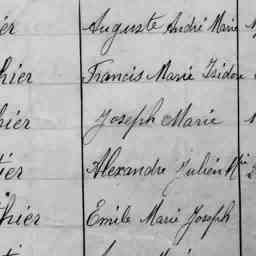 ier Auguste André Marie
hier Francis Marie Isidore
hier Joseph Marie
ier Alexandre Julien Mie
thier Emile Marie Joseph